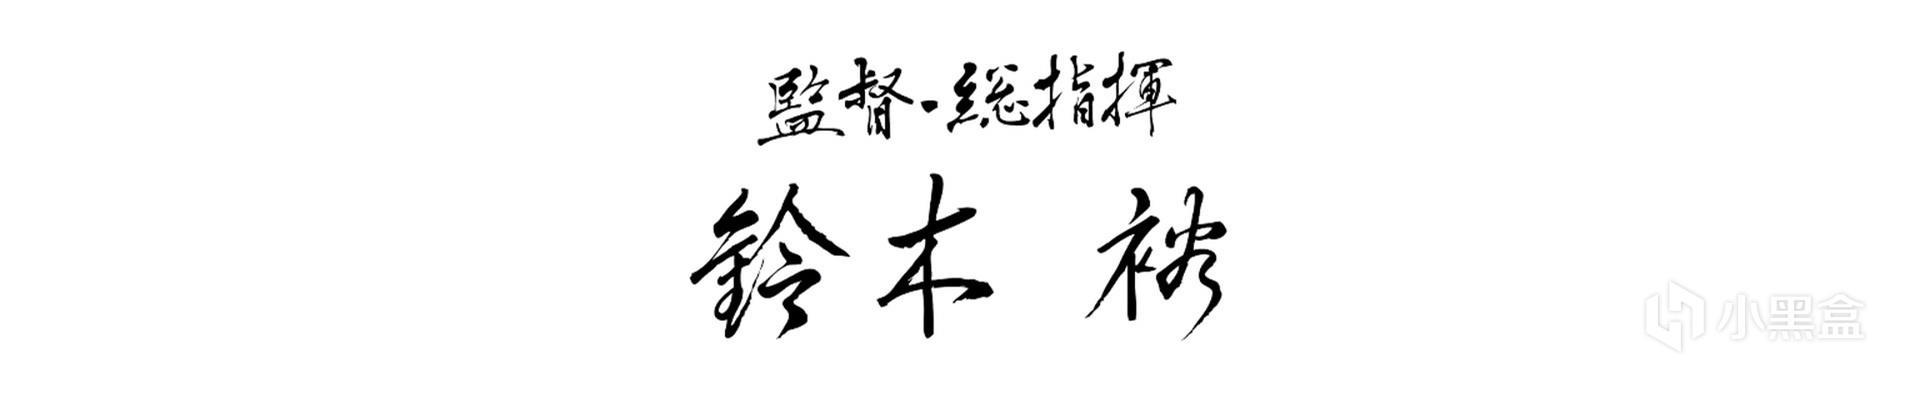 監督・総指揮
鈴木 裕
小黑盒